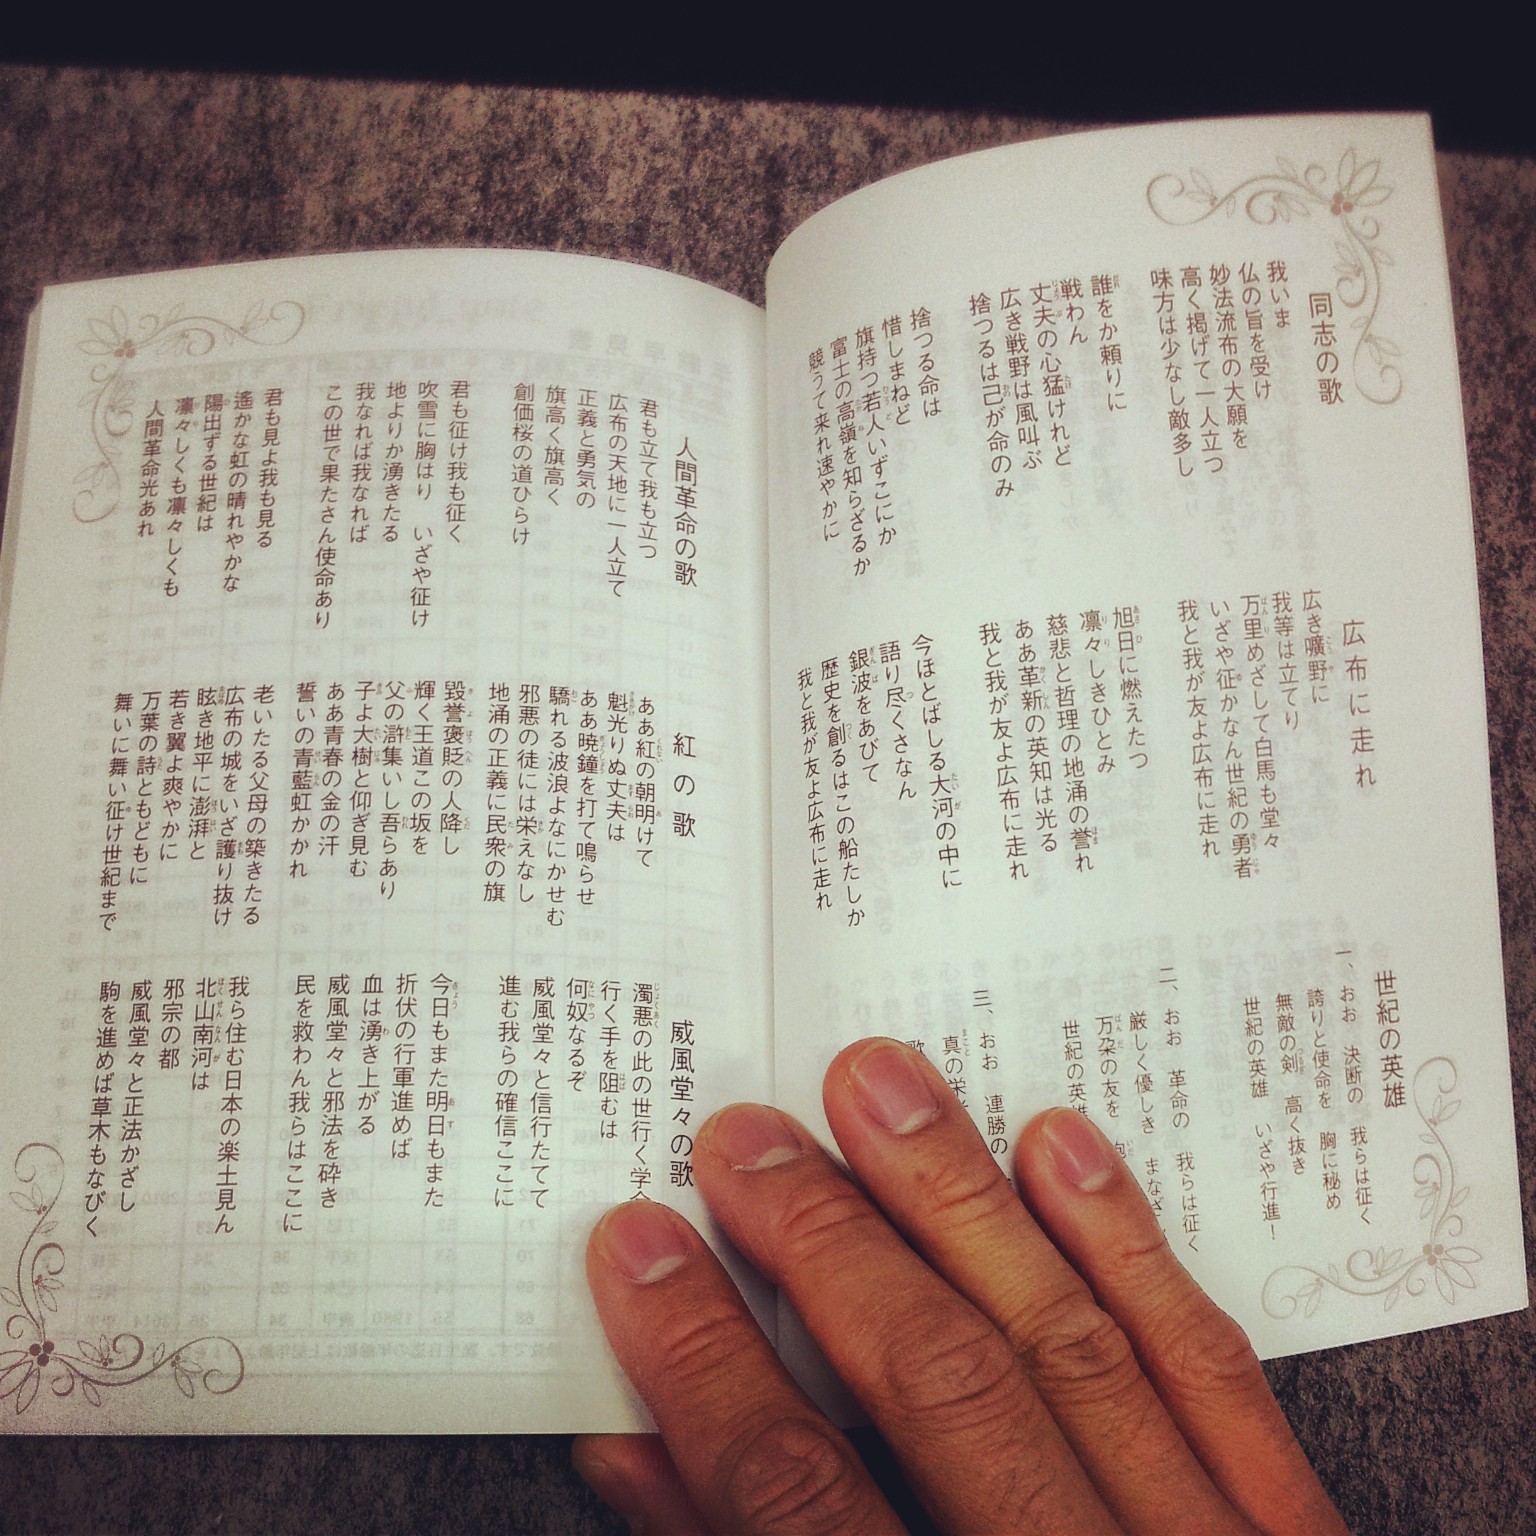 同志の歌
我いま
仏の旨を受け
妙法流布の大願を
高く掲げて一人立つ
味方は少なし敵多し
誰をか頼りに
戦わん
丈夫の心猛けれど
広き戦野は風叫ぶ
捨つるは己が命のみ
捨つる命は
惜しまねど
旗持つ若人いずこにか
富士の高嶺を知らざるか
競うて来れ速やかに
広布に走れ
広き曠野に
我等は立てり
万里めざして白馬も堂々
いざや征かなん世紀の勇者
我と我が友よ広布に走れ
旭日に燃えたつ
凛々しきひとみ
慈悲と哲理の地涌の誉れ
ああ革新の英知は光る
我と我が友よ広布に走れ
今ほとばしる大河の中に
語り尽くさなん
銀波をあびて
歴史を創るはこの船たしか
我と我が友よ広布に走れ
世紀の英雄
一、おお 決断の 我らは征く
誇りと使命を 胸に秘め
無敵の剣 高く抜き
世紀の英雄 いざや行進!
二、おお 革命の 我らは征く
厳しく優しき まなざし
万朶の友を 抱
世紀の英雄
三、おお 連勝の
真の栄
歌
人間革命の歌
君も立て我も立つ
広布の天地に一人立て
正義と勇気の
旗高く旗高く
創価桜の道ひらけ
君も征け我も征く
吹雪に胸はり いざや征け
地よりか湧きたる
我なれば我なれば
この世で果たさん使命あり
君も見よ我も見る
遙かな虹の晴れやかな
陽出ずる世紀は
凛々しくも凛々しくも
人間革命光あれ
紅の歌
ああ紅の朝明けて
魁光りぬ丈夫は
ああ暁鐘を打て鳴らせ
驕れる波浪よなにかせむ
邪悪の徒には栄えなし
地涌の正義に民衆の旗
毀誉褒貶の人降し
輝く王道この坂を
父の滸集いし吾らあり
子よ大樹と仰ぎ見む
ああ青春の金の汗
誓いの青藍虹かかれ
老いたる父母の築きたる
広布の城をいざ護り抜け
眩き地平に澎湃と
若き翼よ爽やかに
万葉の詩ともどもに
舞いに舞い征け世紀まで
威風堂々の歌
濁悪の此の世行く学会
行く手を阻むは
何奴なるぞ
威風堂々と信行たてて
進む我らの確信ここに
今日もまた明日もまた
折伏の行軍進めば
血は湧き上がる
威風堂々と邪法を砕き
民を救わん我らはここに
我ら住む日本の楽土見ん
北山南河は
邪宗の都
威風堂々と正法かざし
駒を進めば草木もなびく